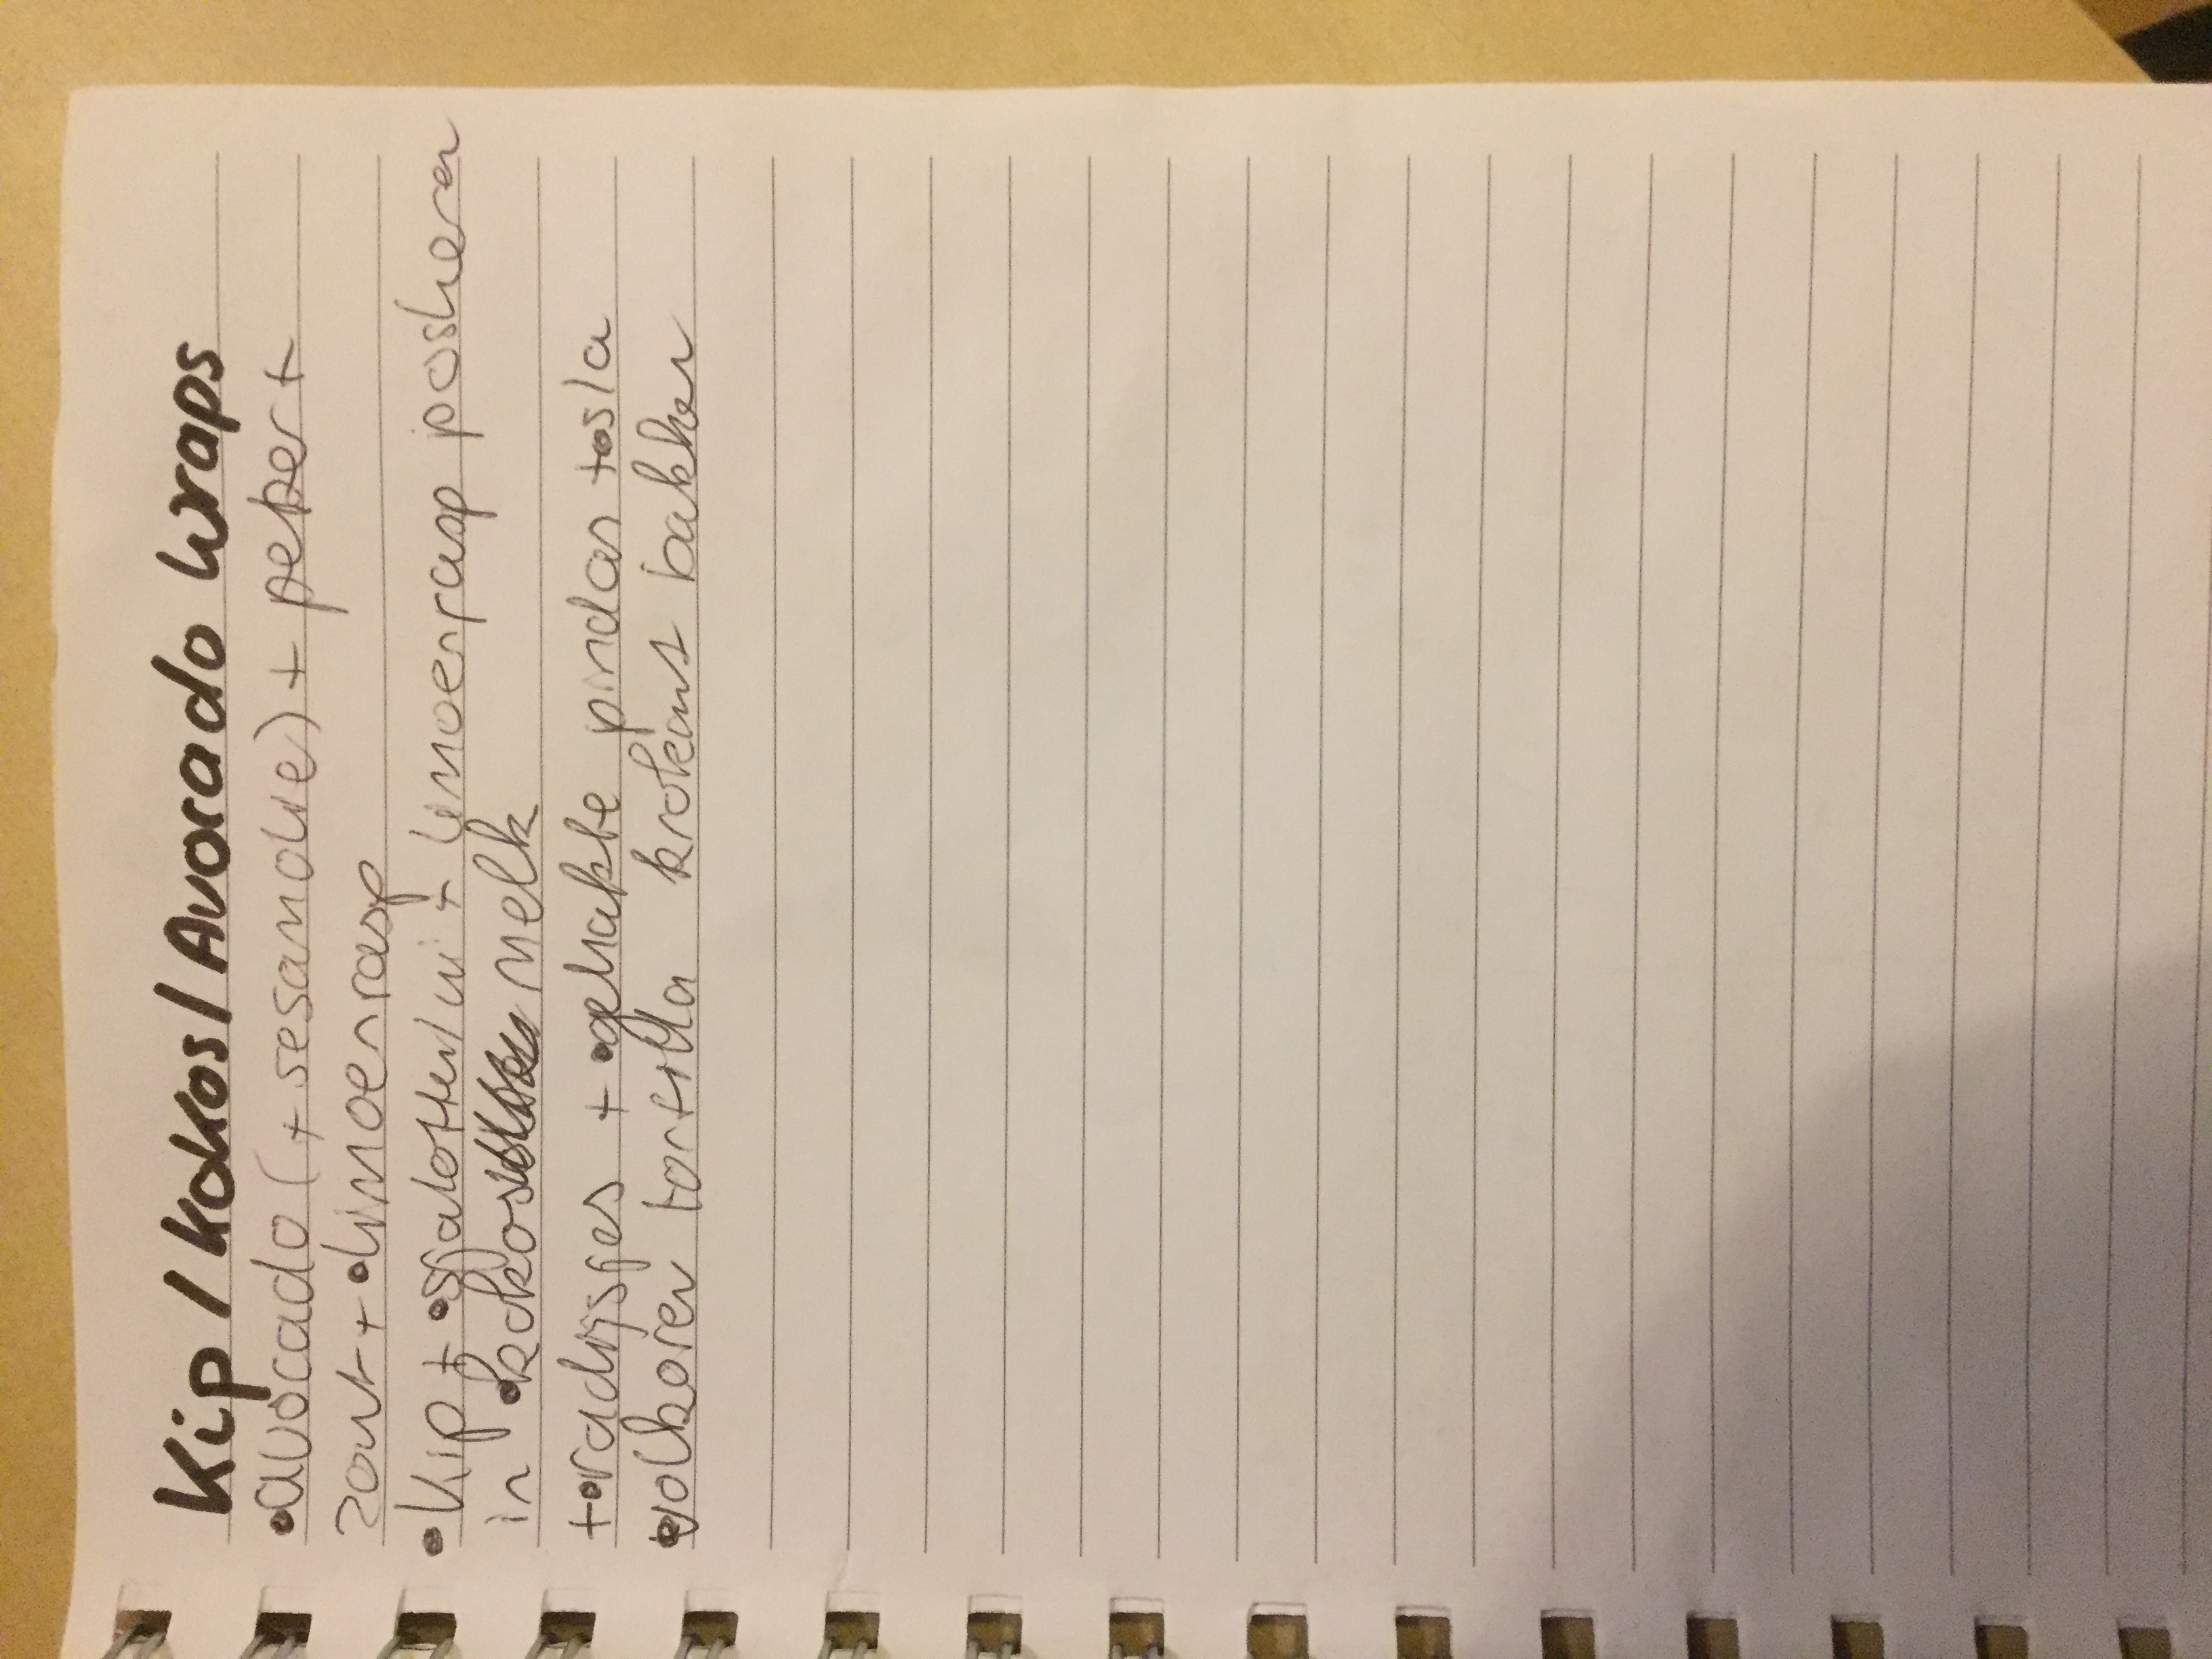 Kip / Kokos / Avocado Wraps
• avocado (+ sesamolie) + peper +
zout + • limoenrasp
• Kip + • sjalotten/ui + limoenrasp pocheren
in • kokos melk
+ • radijsjes + • gehakte pindas + • sla
• volkoren tortilla krokant bakken